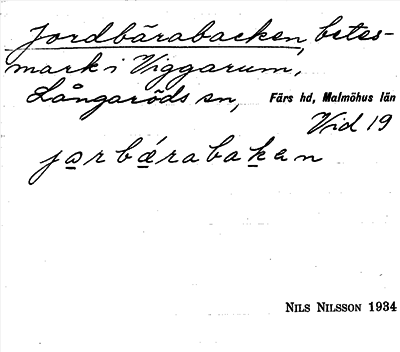 Jordbärabacken, betes-
mark i Viggarum,
Långaröds sn, Färs hd, Malmöhus län
Vid 19
ja̲rbǽ̲raba̲k̲an
NILS NILSSON 1934